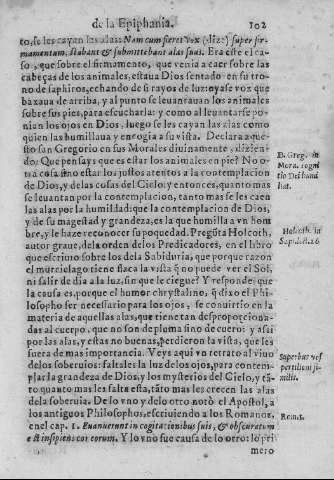 de la Epiphania. 102
to, se les cayan las alas: Nam cum fieret vox (dize) super fir-
mamentum, stabant & submittebant alas suas. Era este el ca-
so, que sobre el firmamento, que venia a caer sobre las
cabeças de los animales, estaua Dios sentado en su tro-
no de saphiros, echando de si rayos de luz: oyase voz que
baxaua de arriba, y al punto se leuantauan los animales
sobre sus pies, para escucharla: y como al leuantarse po-
nian los ojos en Dios, luego se les cayan las alas como
quien las humillaua y encogia a su vista. Declara aque-
sto san Gregorio en sus Morales diuinamente, dizien-
do: Que pensays que es estar los animales en pie? No o-
tra cosa sino estar los justos atentos a la contemplacion
de Dios, y de las cosas del Cielo; y entonces, quanto mas
se leuantan por la contemplacion, tanto mas se les caen
las alas por la humildad: que la contemplacion de Dios,
y de su magestad y grandeza, es la que humilla a vn hom
bre, y le haze reconocer su poquedad. Pregũta Holcoth,
autor graue, de la orden de los Predicadores, en el libro
que escriuio sobre los dela Sabiduria, que porque razon
el murcielago tiene flaca la vista q̃ no puede ver el Sol,
ni salir de dia a la luz, sin que le ciegue? Y responde, que
la causa es, porque el humor chrystalino, q̃ dixo el Phi-
losopho ser necessario para los ojos, se conuirtio en la
materia de aquellas alas, que tiene tan desproporciona-
das al cuerpo, que no son de pluma sino de cuero: y assi
por las alas, y estas no buenas, perdieron la vista, que les
fuera de mas importancia. Veys aqui vn retrato al viuo
delos soberuios: faltales la luz delos ojos, para contem-
plar la grandeza de Dios, y los mysterios del Cielo, y tã-
to quanto mas les falta esta, tãto mas les crecen las alas
dela soberuia. De lo vno y delo otro notò el Apostol, a
los antiguos Philosophos, escriuiendo a los Romanos,
en el cap. 1. Euanuerunt in cogitationibus suis, & obscuratum
est insipiens cor eorum. Y lo vno fue causa de lo otro: lo pri
mero
D. Greg. in
Mora. cogni
tio Dei humi
liat.
Holcoth. in
Superbus ves
pertilioni si-
milis.
Rom. 1.